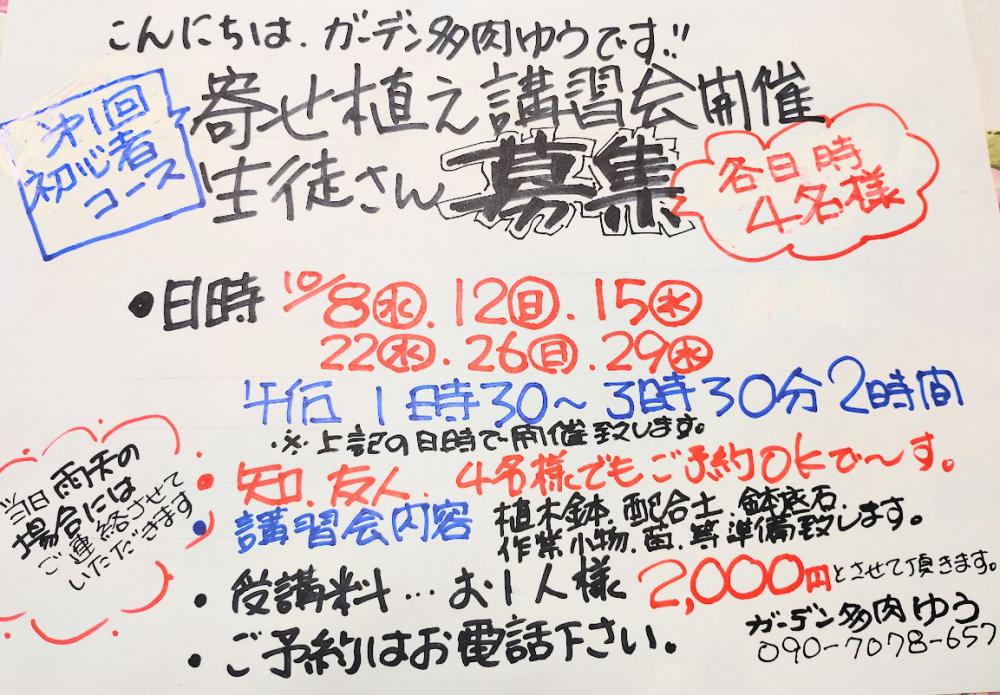 こんにちは、ガーデン多肉ゆうです!!
第1回
初心者
コース
寄せ植え講習会開催
生徒さん募集
各日時
4名様
・日時 10/8㊌.12㊐.15㊌
22㊌.26㊐.29㊌
午后 1時30〜3時30分2時間
・※上記の日時で開催致します。
・知.友人.4名様でもご予約OKで〜す。
・講習会内容 植木鉢.配合土.鉢底石.
作業小物.苗.等準備致します。
当日雨天の
場合には
ご連絡させて
いただきます
・受講料…お1人様2,000円とさせて頂きます。
・ご予約はお電話下さい。
ガーデン多肉ゆう
090-7078-657